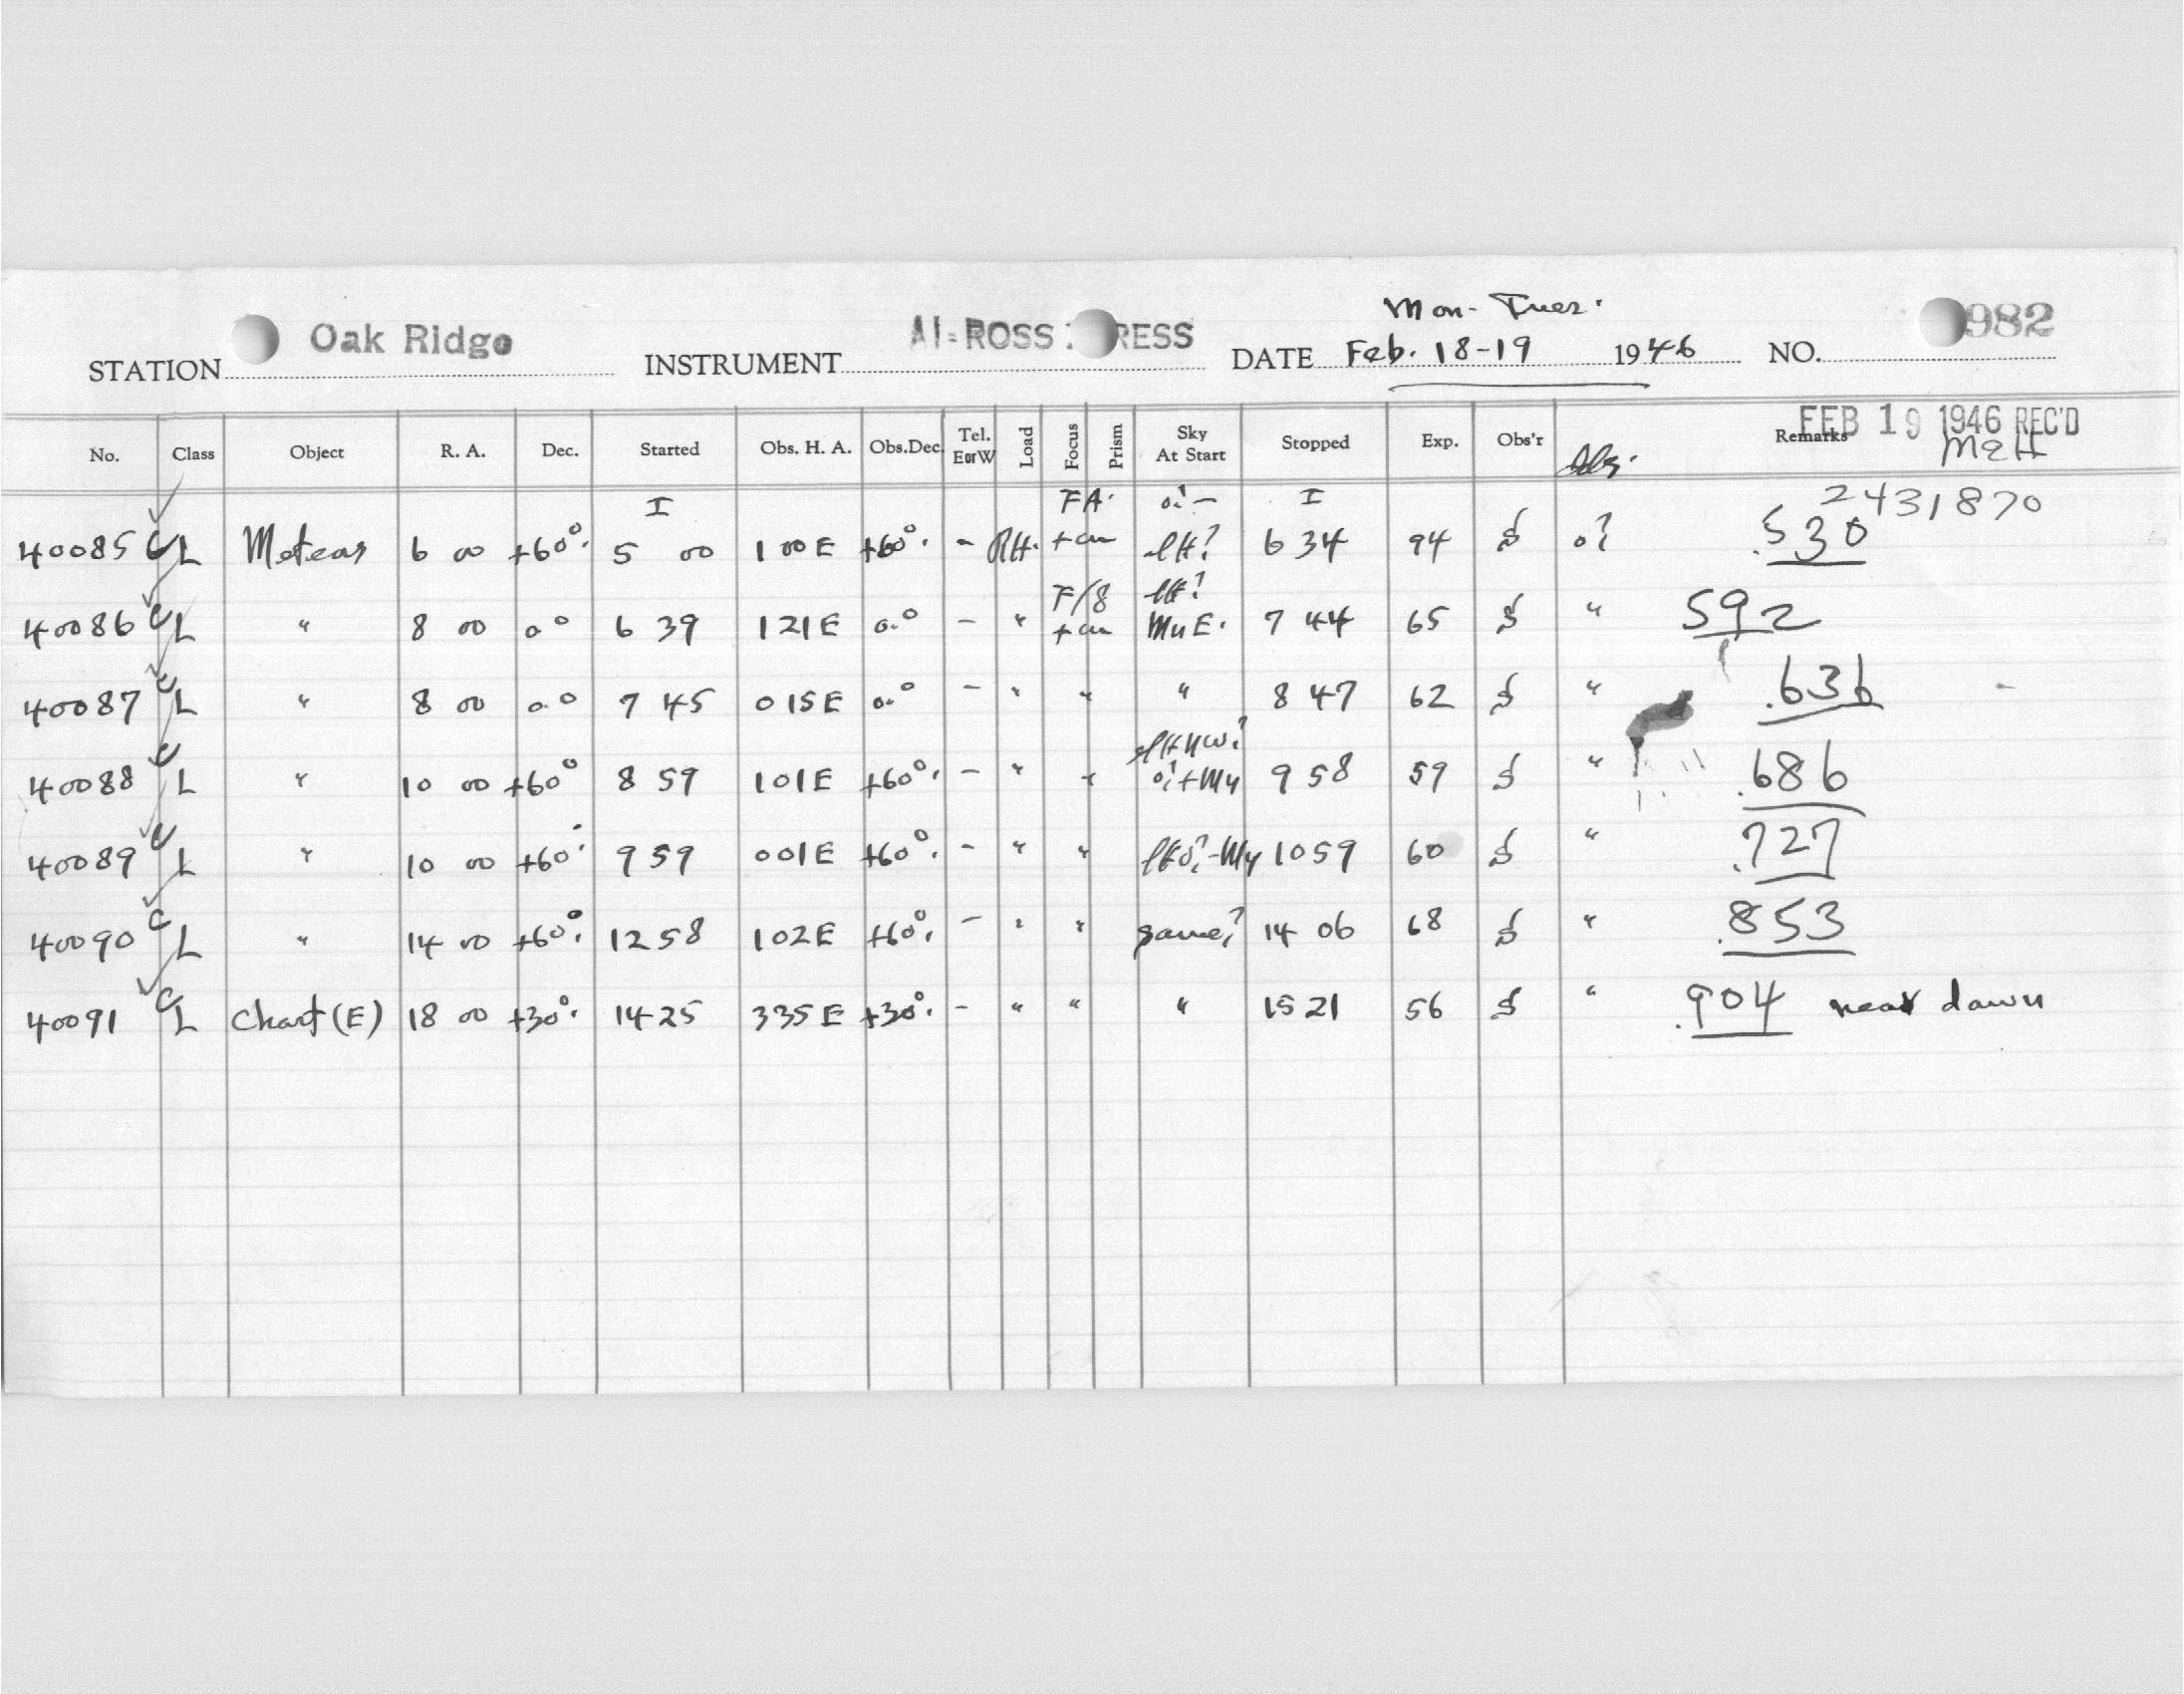 Mon-Tues.
STATION Oak Ridge INSTRUMENT AI-ROSS RESS DATE Feb. 18-19 1946 NO. 982
FEB 19 1946 REC'D
No. Class Object R. A. Dec. Started Obs. H. A. Obs.Dec. Tel. EorW Load Focus Prism Sky At Start Stopped Exp. Obs'r Remarks
I FA. I 2431870
40085 C L Meteors 6 00 +60° 5 00 1 00 E +60° - RH. 6 34 94 .530
F/8
40086 C L " 8 00 0° 6 39 1 21 E 0° - " 7 44 65 " 592
40087 C L " 8 00 0° 7 45 0 15 E 0° - " " " 8 47 62 " .636
40088 C L " 10 00 +60° 8 59 1 01 E +60° - " " 9 58 59 " .686
40089 C L " 10 00 +60° 9 59 0 01 E +60° - " " 10 59 60 " .727
40090 C L " 14 00 +60° 12 58 1 02 E +60° - " " same? 14 06 68 " .853
40091 C L Chart (E) 18 00 +30° 14 25 3 35 E +30° - " " " 15 21 56 " .904 near dawn